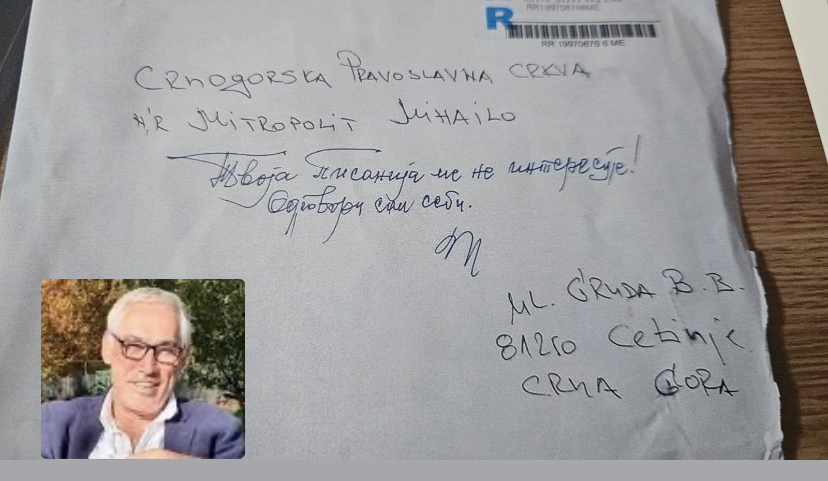 RR 19970676 6 ME
CRNOGORSKA PRAVOSLAVNA CRKVA
N/R MITROPOLIT MIHAILO
Твоја писанија ме не интересује!
Одговори сам себи.
M
UL. GRUDA B.B.
81250 Cetinje
CRNA GORA